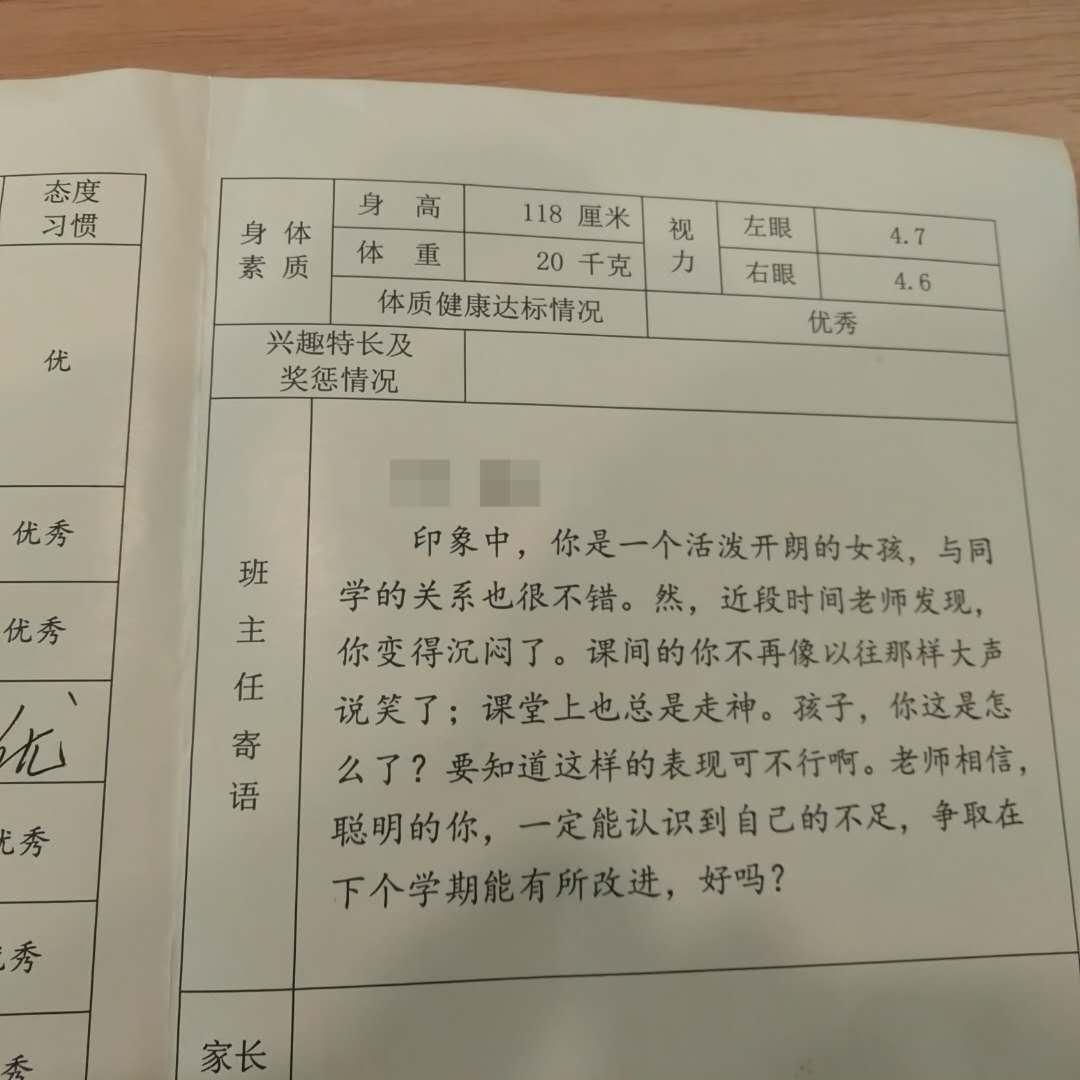 态度
习惯
优
优秀
优秀
优
优秀
优秀
秀
身体
素质
身 高
118 厘米
体 重
20 千克
视
力
左眼
4.7
右眼
4.6
体质健康达标情况
优秀
兴趣特长及
奖惩情况
班
主
任
寄
语
印象中，你是一个活泼开朗的女孩，与同
学的关系也很不错。然，近段时间老师发现，
你变得沉闷了。课间的你不再像以往那样大声
说笑了；课堂上也总是走神。孩子，你这是怎
么了？要知道这样的表现可不行啊。老师相信，
聪明的你，一定能认识到自己的不足，争取在
下个学期能有所改进，好吗？
家长